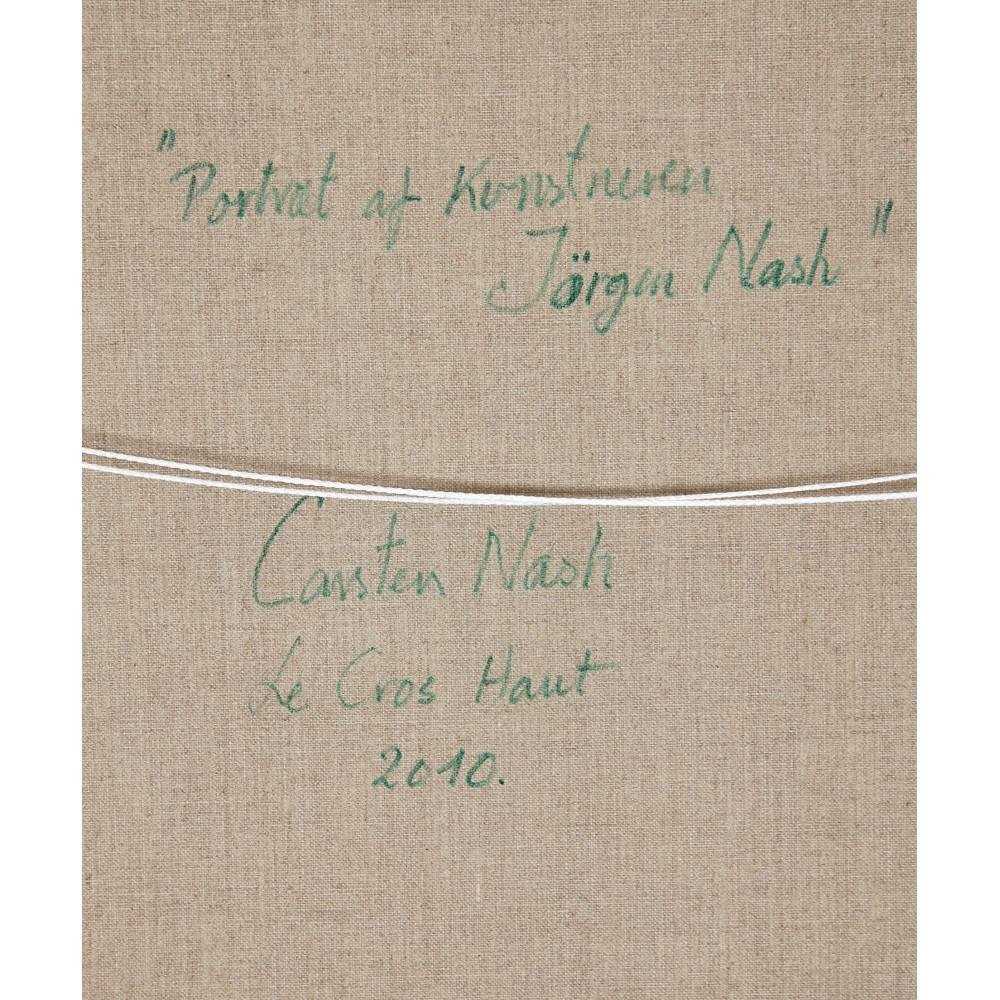 "Portræt af Kunstneren
Jörgen Nash"
Carsten Nash
Le Cros Haut
2010.